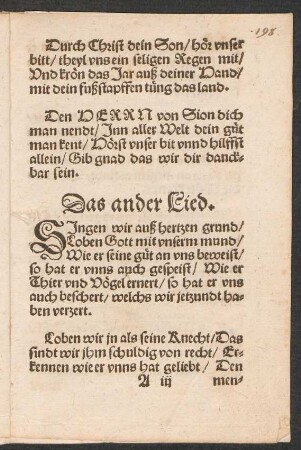 198
Durch Christ dein Son/ hör vnser
bitt/ theyl vns ein seligen Regen mit/
Vnd krön das Jar auß deiner Hand/
mit dein fußstapffen tüng das land.
Den HERRN von Sion dich
man nendt/ Inn aller Welt dein güt
man kent/ Hörst vnser bit vnnd hilffst
allein/ Gib gnad das wir dir danck-
bar sein.
Das ander Lied.
SIngen wir auß hertzen grund/
Loben Gott mit vnserm mund/
Wie er seine güt an vns beweist/
so hat er vnns auch gespeist/ Wie er
Thier vnd Vögel ernert/ so hat er vns
auch beschert/ welchs wir jetzundt ha-
ben verzert.
Loben wir jn als seine Knecht/ Das
sindt wir jhm schuldig von recht/ Er-
kennen wie er vnns hat geliebt/ Den
A iij men-